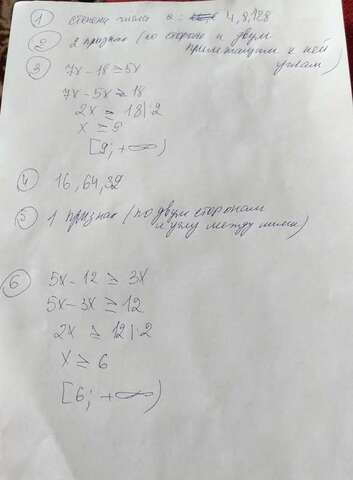 1 степени числа 2: 4, 8, 128
2 2 признак (по стороне и двум
прилежащим к ней
углам)
3 7x - 18 ≥ 5x
7x - 5x ≥ 18
2x ≥ 18 | : 2
x ≥ 9
[9; +∞)
4 16, 64, 32
5 1 признак (по двум сторонам
и углу между ними)
6 5x - 12 ≥ 3x
5x - 3x ≥ 12
2x ≥ 12 | : 2
x ≥ 6
[6; +∞)